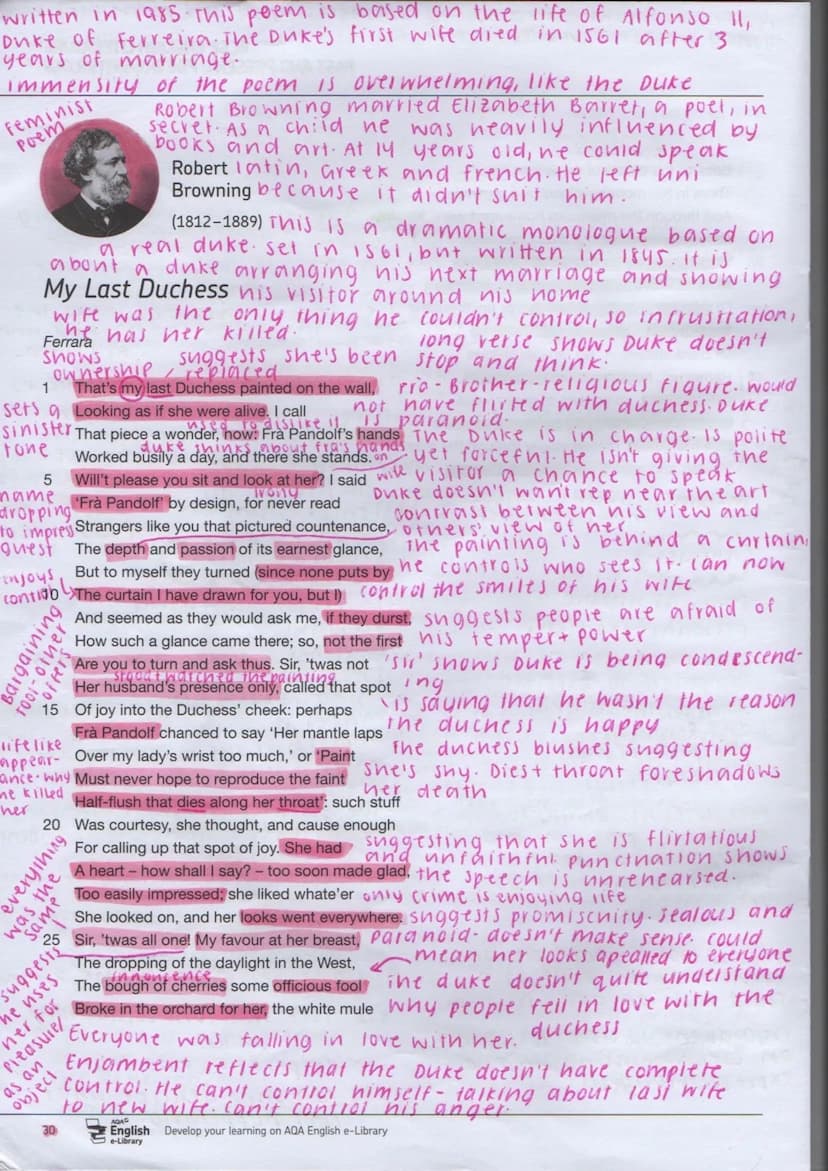 written in 1985. This poem is based on the life of Alfonso II,
Duke of Ferreira. The Duke's first wife died in 1561 after 3
years of marriage.
immensity of the poem is overwhelming, like the Duke
feminist
poem
Robert Browning married Elizabeth Barret, a poet, in
secret. As a child he was heavily influenced by
books and art. At 14 years old, he could speak
Robert latin, Greek and french. He left uni
Browning because it didn't suit him.
(1812–1889) This is a dramatic monologue based on
a real duke. set in 1561, but written in 1845. it is
about a duke arranging his next marriage and showing
My Last Duchess his visitor around his home
wife was the only thing he couldn't control, so in frustration,
he has her killed.
Ferrara
long verse shows Duke doesn't
stop and think.
shows
ownership
suggests she's been
replaced
1 That's my last Duchess painted on the wall,
Fra - Brother - religious figure. would
sets a
sinister
tone
Looking as if she were alive. I call
not have flirted with duchess. Duke
is paranoid.
used to dislike it
That piece a wonder, now: Frà Pandolf's hands
The Duke is in charge. Is polite
duke thinks about fra's hands
on
wife
Worked busily a day, and there she stands.
yet forceful. He isn't giving the
5 Will't please you sit and look at her? I said
visitor a chance to speak
name
dropping
to impress
guest
'Frà Pandolf' by design, for never read
Duke doesn't want rep near the art
contrast between his view and
Strangers like you that pictured countenance,
others' view of her
The depth and passion of its earnest glance,
The painting is behind a curtain,
enjoys
control
But to myself they turned (since none puts by
he controls who sees it. can now
10 The curtain I have drawn for you, but I)
control the smiles of his wife
bargaining
tool - other
offers
And seemed as they would ask me, if they durst,
suggests people are afraid of
How such a glance came there; so, not the first
his temper + power
Are you to turn and ask thus. Sir, 'twas not
'sir' shows Duke is being condescend-
ing
stood/watched the painting
Her husband's presence only, called that spot
15 Of joy into the Duchess' cheek: perhaps
is saying that he wasn't the reason
the duchess is happy
Frà Pandolf chanced to say 'Her mantle laps
lifelike
appear-
ance - why
he killed
her
Over my lady's wrist too much,' or 'Paint
The duchess blushes suggesting
Must never hope to reproduce the faint
she's shy. Dies + throat foreshadows
her death
Half-flush that dies along her throat': such stuff
20 Was courtesy, she thought, and cause enough
For calling up that spot of joy. She had
suggesting that she is flirtatious
and unfaithful. punctuation shows
everything
was the
same
A heart – how shall I say? – too soon made glad,
the speech is unrehearsed.
Too easily impressed; she liked whate'er
only crime is enjoying life
She looked on, and her looks went everywhere.
suggests promiscuity. Jealous and
25 Sir, 'twas all one! My favour at her breast,
paranoid - doesn't make sense. could
mean her looks apealled to everyone
suggests
he uses
her for
pleasure/
as an
object
The dropping of the daylight in the West,
innoncence
The bough of cherries some officious fool
The duke doesn't quite understand
Broke in the orchard for her, the white mule
why people fell in love with the
duchess
Everyone was falling in love with her.
Enjambent reflects that the Duke doesn't have complete
control. He can't control himself - talking about last wife
to new wife. can't control his anger.
30 AQA English e-Library Develop your learning on AQA English e-Library